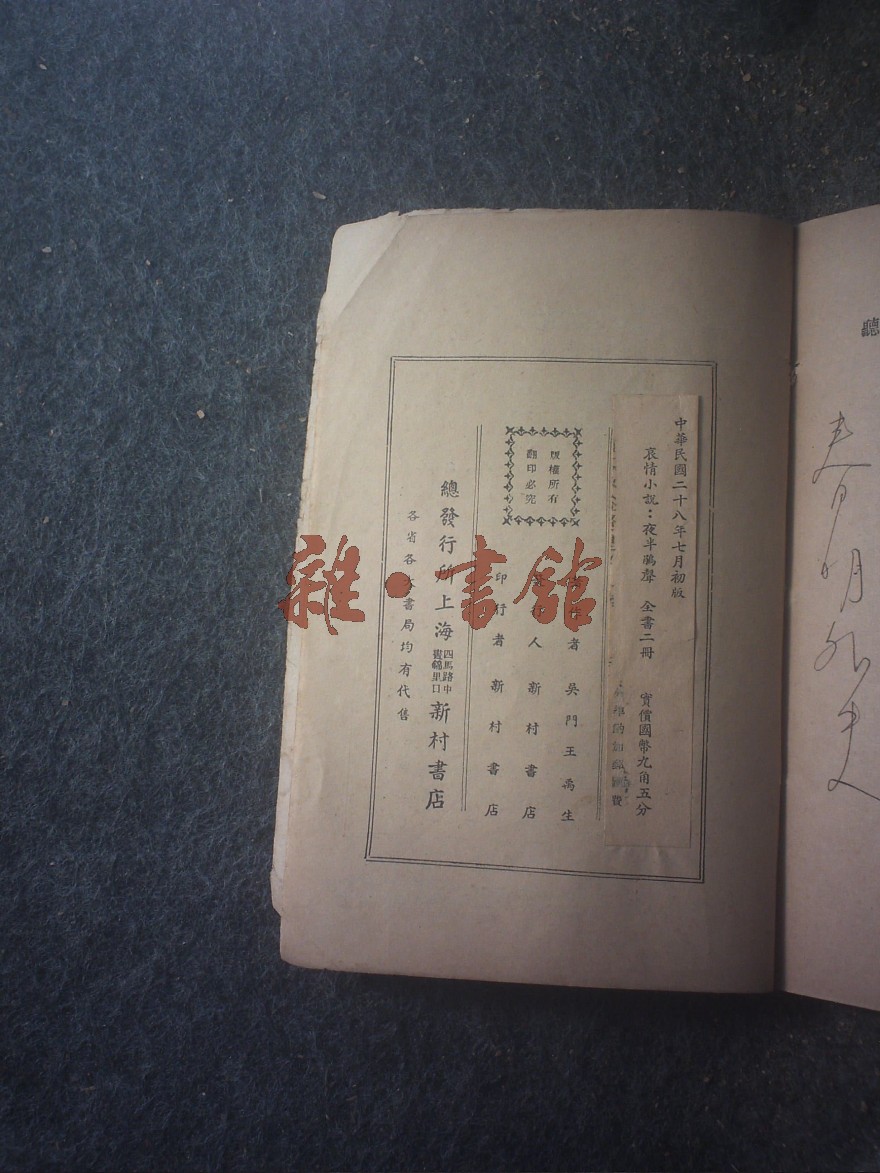 中華民國二十八年七月初版
哀情小說：夜半鵑聲　全書二冊　實價國幣九角五分
版權所有
翻印必究
者　吳門王禹生
人　新村書店
印行者　新村書店
總發行所上海四馬路中新村書店
各省各　書局均有代售
雜·書館